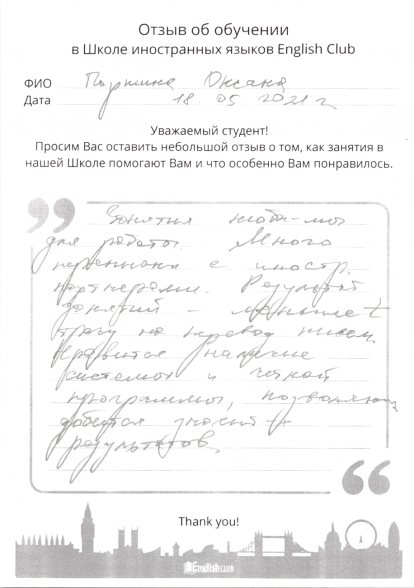 Отзыв об обучении
в Школе иностранных языков English Club
ФИО Паршина Оксана
Дата 18.05.2021 г.
Уважаемый студент!
Просим Вас оставить небольшой отзыв о том, как занятия в
нашей Школе помогают Вам и что особенно Вам понравилось.
Занятия необх-мы
для работы. Много
переписки с иностр.
партнерами. Результат
занятий – меньше t
трачу на перевод писем.
Нравится наличие
системы и четкой
программы, позволяющ
добиться
результатов.
Thank you!
English CLUB